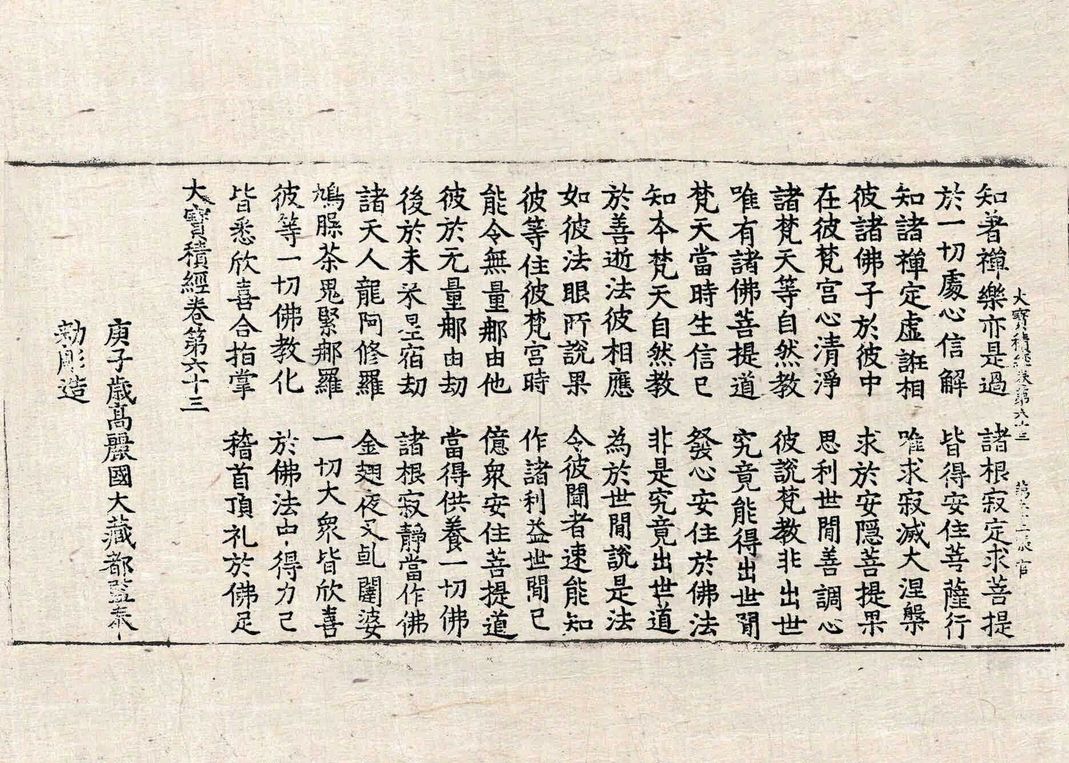 大寶積經卷第六十三 第 張 官
知著禪樂亦是過 諸根寂定求菩提
於一切處心信解 皆得安住菩薩行
知諸禪定虛誑相 唯求寂滅大涅槃
彼諸佛子於彼中 求於安隱菩提果
在彼梵宮心清淨 思利世閒善調心
諸梵天等自然教 彼說梵教非出世
唯有諸佛菩提道 究竟能得出世閒
梵天當時生信已 發心安住於佛法
知本梵天自然教 非是究竟出世道
於善逝法彼相應 為於世閒說是法
如彼法眼所說果 令彼聞者速能知
彼等住彼梵宮時 作諸利益世閒已
能令無量那由他 億衆安住菩提道
彼於无量那由劫 當得供養一切佛
後於未来星宿劫 諸根寂靜當作佛
諸天人龍阿修羅 金翅夜叉乹闥婆
鳩槃茶鬼緊那羅 一切大衆皆欣喜
彼等一切佛教化 於佛法中得力已
皆悉欣喜合指掌 稽首頂礼於佛足
大寶積經卷第六十三
庚子歲高麗國大藏都監奉
勅彫造